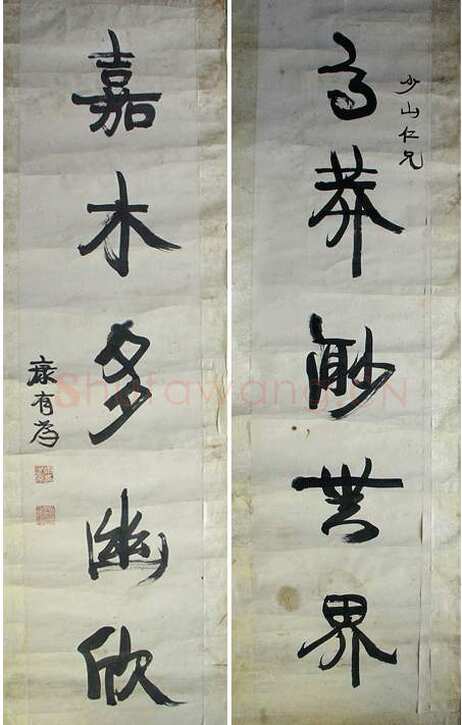 少山仁兄
高莽眇世界
嘉木多幽欣
康有為
Shufawang.CN